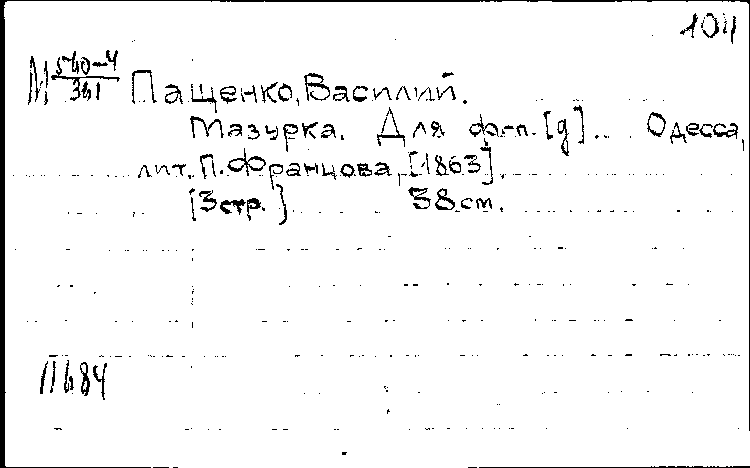 104
М 540-4/341 Пащенко, Василий.
Мазурка. Для ф-п. [g]. Одесса,
лит. П. Францова, [1863].
[3 стр.] 38 см.
П684